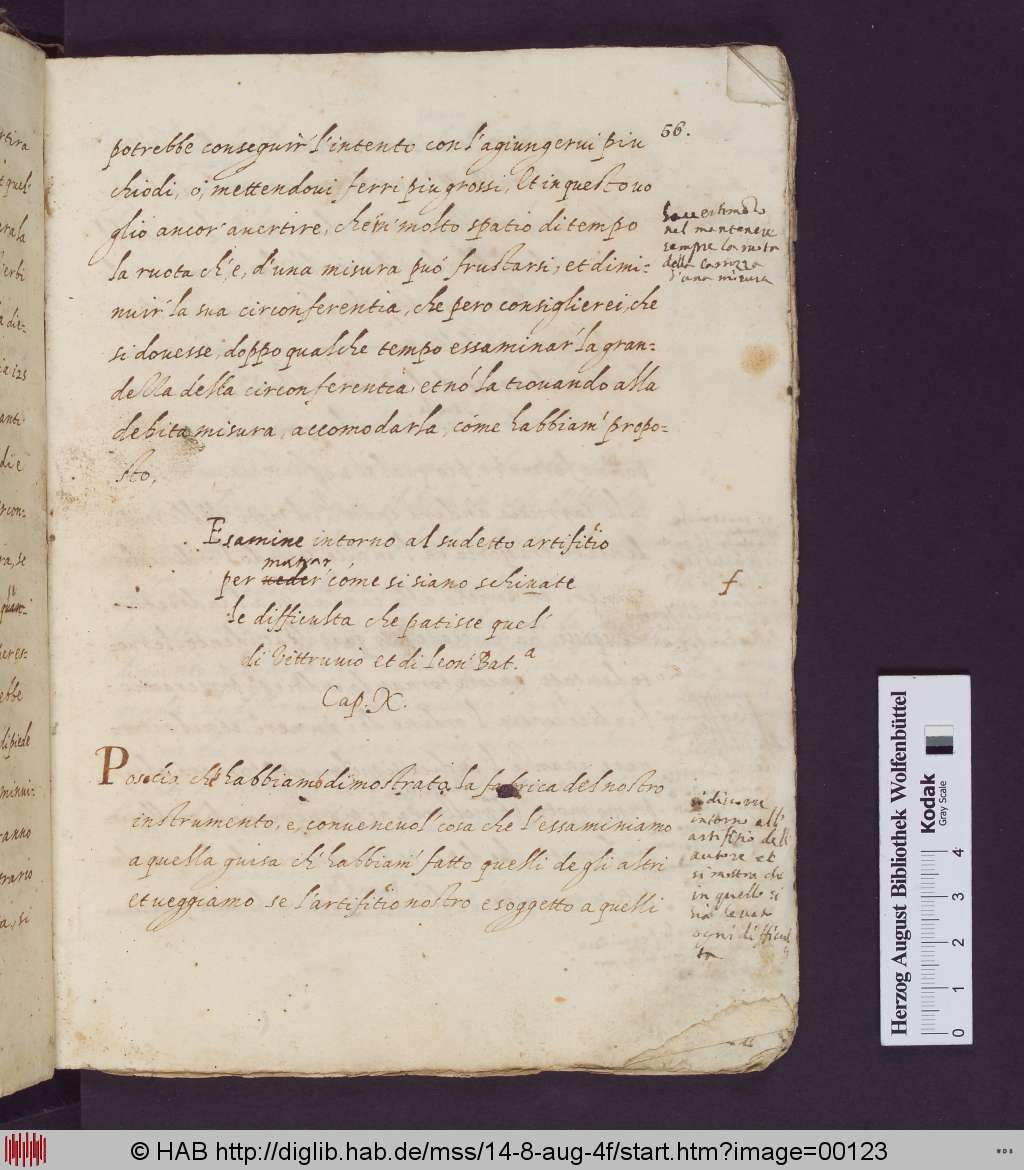 56.
potrebbe conseguir' l'intento con l'agiungerui piu
chiodi, ó, mettendoui ferri piu grossi, Et in questo uo
glio ancor' auertire, che in' molto spatio di tempo
la ruota ch', e, d'una misura puó frustarsi, et dimi-
nuir' la sua circonferentia, che pero consiglierei, che
si douesse, doppo qualche tempo essaminar' la gran-
dezza della circonferentia, et nó la trouando alla
debita misura, accomodarla, cóme habbiam' propo-
sto,
nel mantenere
sempre la ruota
della carrozza
d'una misura
Esamine intorno al sudetto artifitio
mostrar
per ueder' cóme si siano schiuate
le difficulta che patisce quel'
di Vittruuio et di Leon' Bat.a
Cap. X.
f
Poscia che habbiamo dimostrato la fabrica del nostro
instrumento, e, conueneuol' cosa che l'essaminiamo
a quella guisa ch' habbiam' fatto quelli de gli altri
et ueggiamo se l'artifitio nostro e soggetto a quelli
si discorre
intorno all'
artifitio dell'
autore et
si mostra che
in quello si
sia leuat
ogni difficul
ta
rtira
quel-
era la
erbi
a die-
ia 125
anti-
di e
rcon-
ra, se
quan-
her es-
ebbe
di piede
minui-
ranno
trario
ia, si
Herzog August Bibliothek Wolfenbüttel
Kodak
Gray Scale
0 1 2 3 4
© HAB http://diglib.hab.de/mss/14-8-aug-4f/start.htm?image=00123